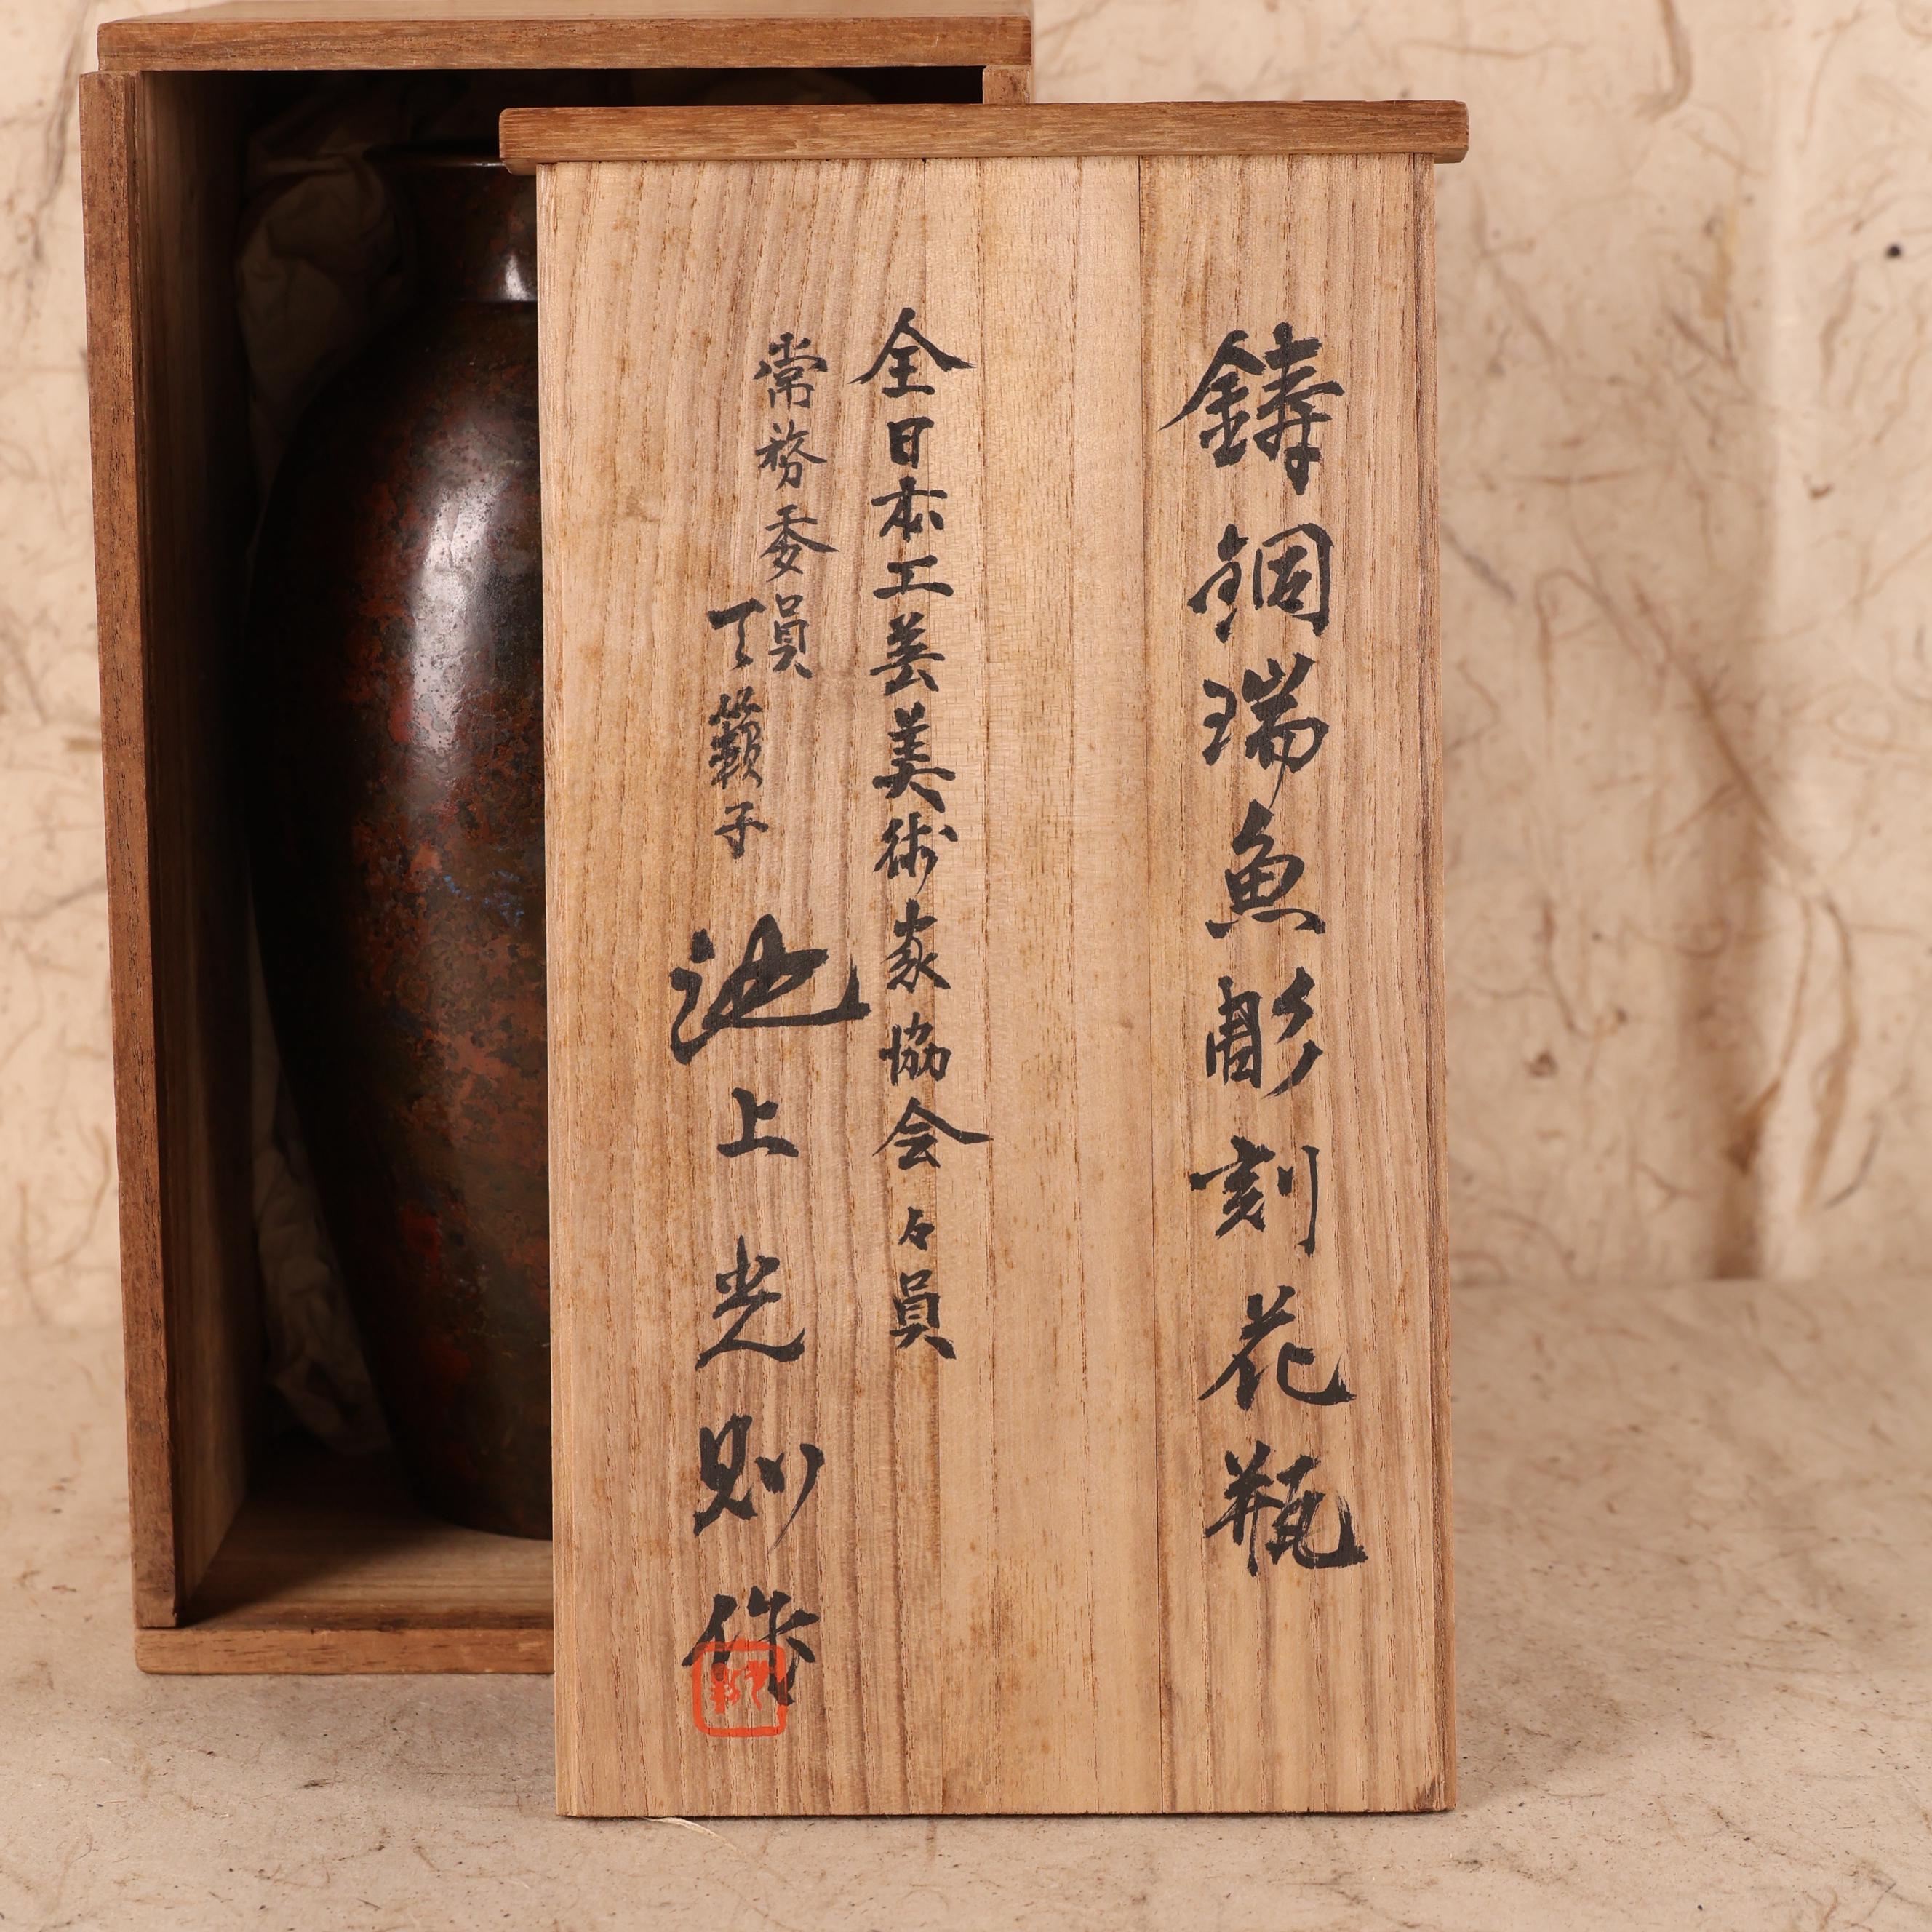 鋳銅瑞魚彫刻花瓶
全日本工芸美術家協会々員
常務委員
天籟子 池上光則作